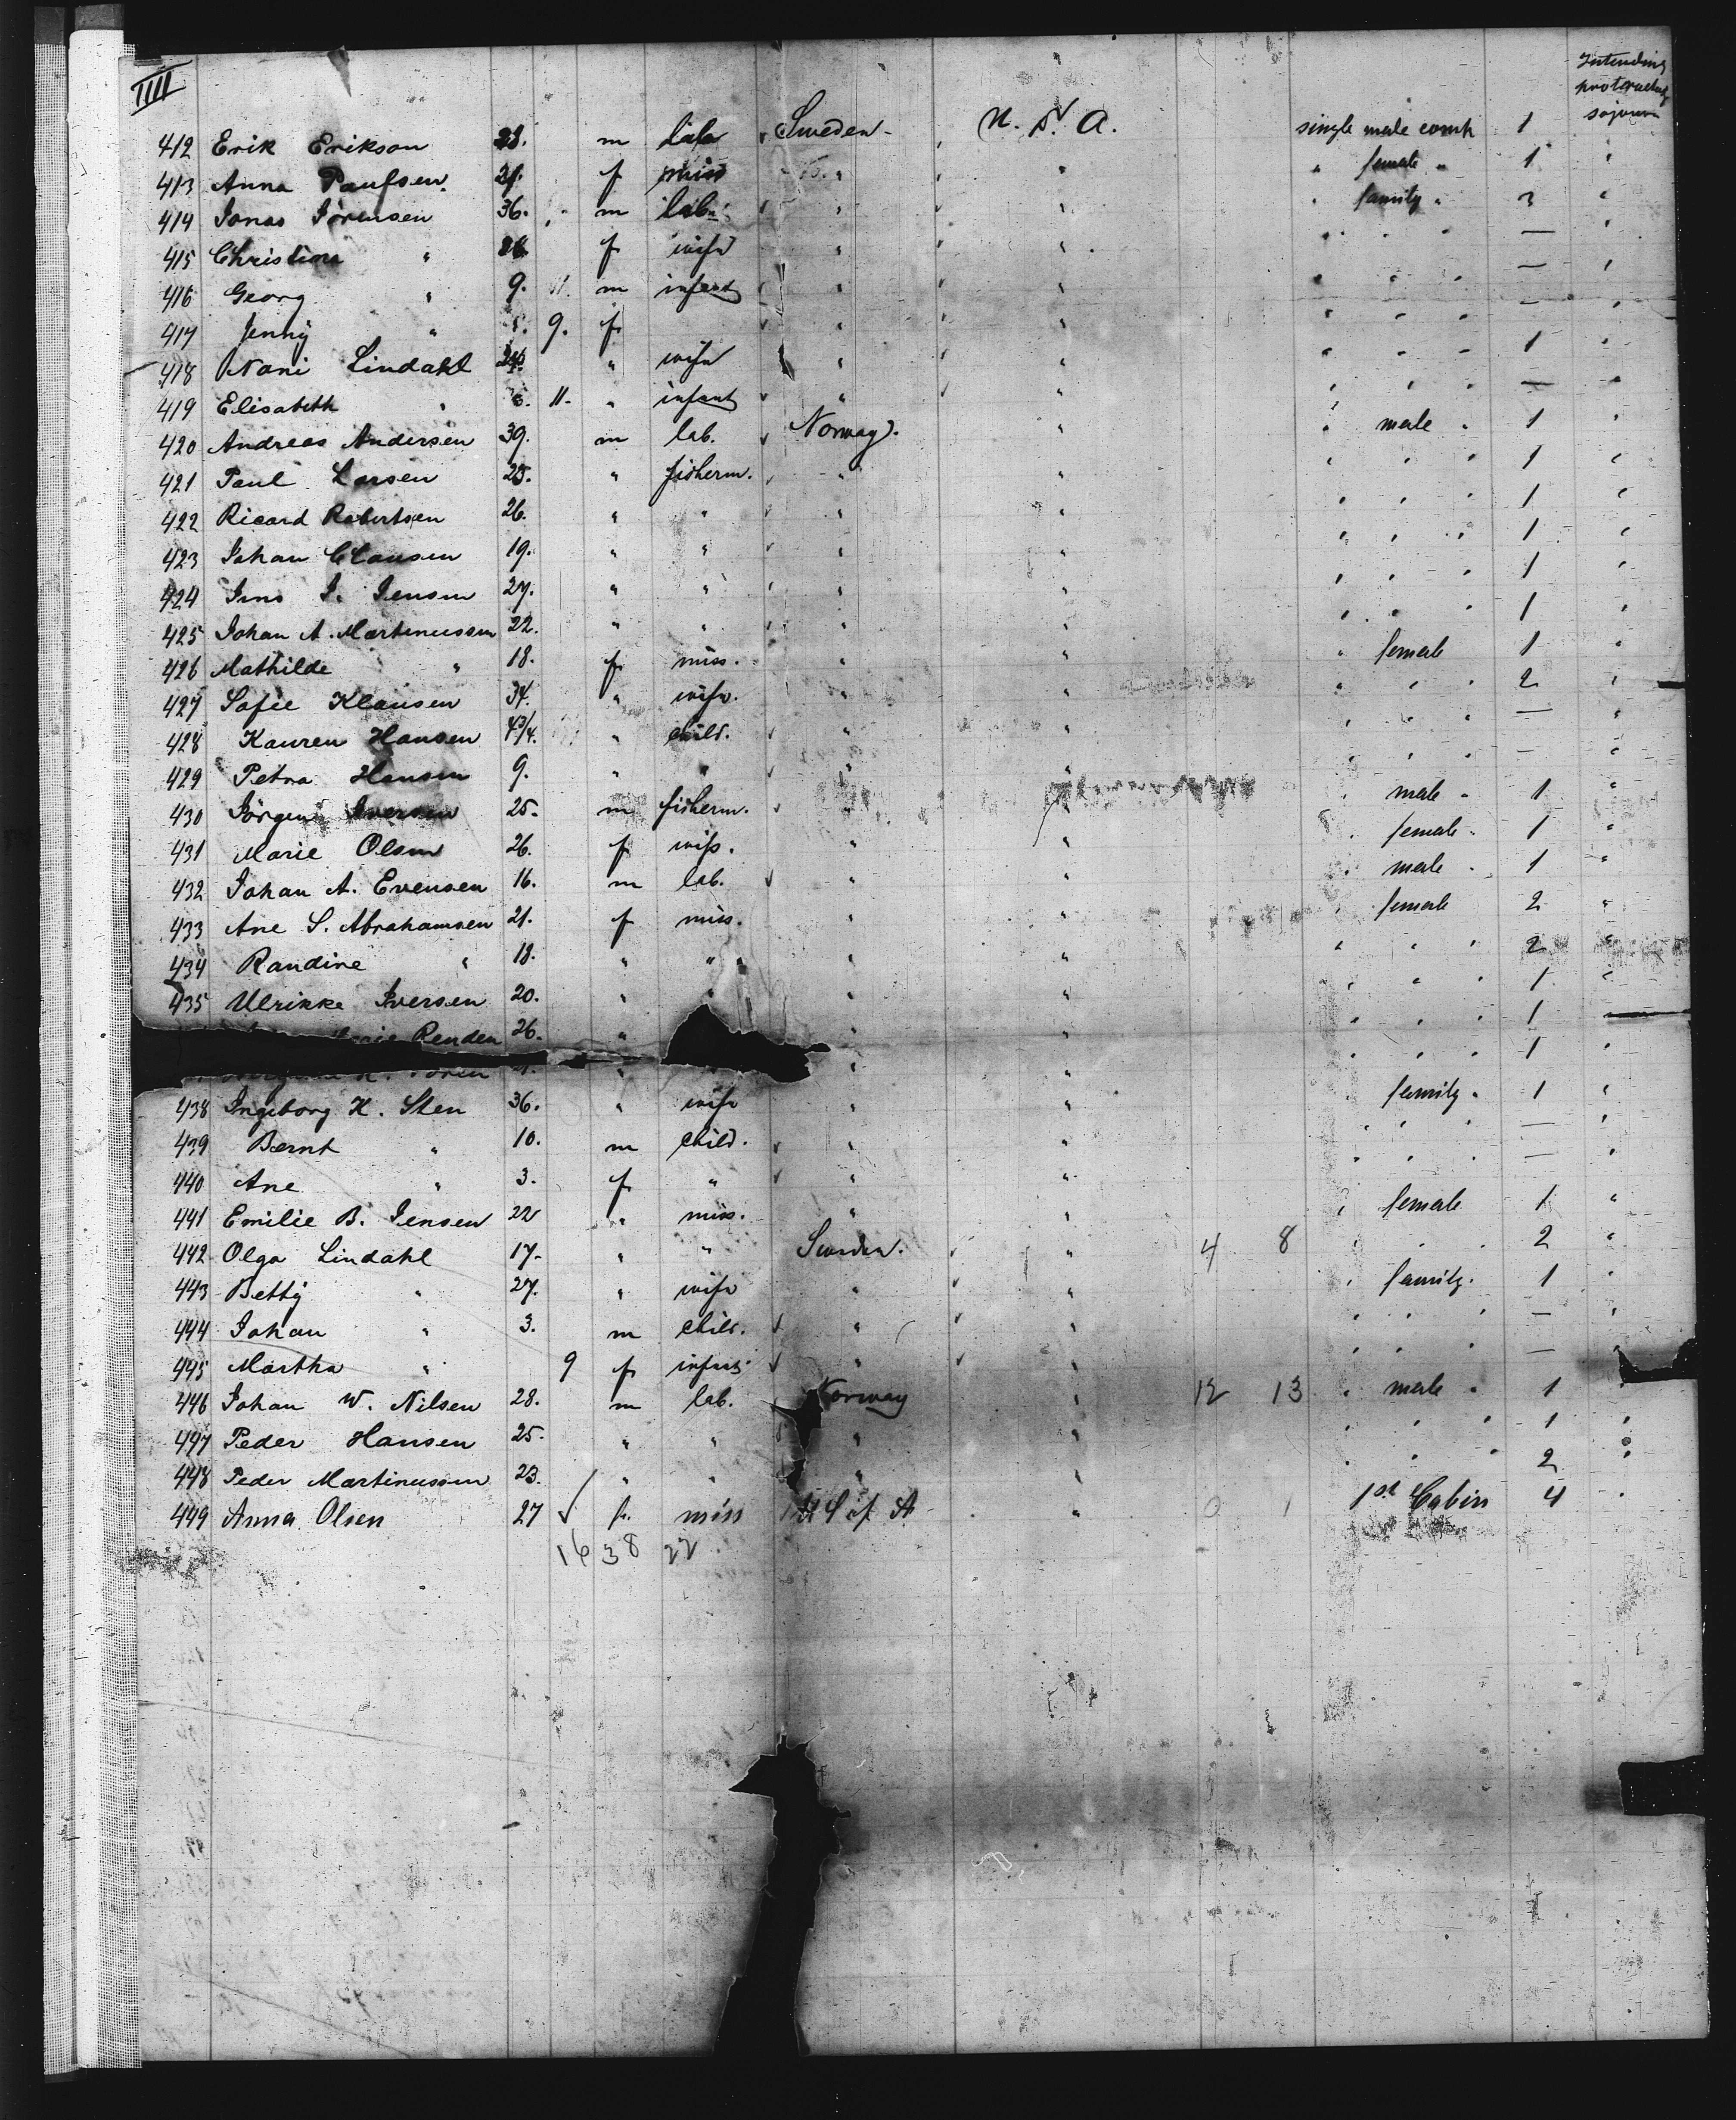 IIII
Intending
protracted
sojourn
412 Erik Erikson 23. m lab Sweden - U. S. A. single male comp 1
413 Anna Paulsen. 21. f miss " " " female " 1 "
414 Jonas Jörensen 36. m lab. " " " family " 3 "
415 Christina " f wife " " " " " — "
416 Georg " 9. 11. m infant " " " " " — "
417 Jenny " 9. f " " " " " — "
418 Nani Lindahl 24. " wife " " " " " 1 "
419 Elisabeth " 11. " infant " " " " " — "
420 Andreas Andersen 39. m lab. Norway. " " male " 1 "
421 Paul Larsen 25. " fisherm. " " " " " 1 "
422 Ricard Robertsen 26. " " " " " " " 1 "
423 Johan Clausen 19. " " " " " " " 1 "
424 Jens J. Jensen 27. " " " " " " " 1
425 Johan A. Martinussen 22. " " " " " " " 1 "
426 Mathilde " 18. f miss. " " " female 1 "
427 Sofie Klausen 34. " wife. " " " " " 2 "
428 Kauren Hansen 4 3/4. " child. " " " " " — "
429 Petra Hansen 9. " " " " " " " — "
430 Jörgen Iversen 25. m fisherm. " " " male " 1 "
431 Marie Olsen 26. f wife. " " " female " 1 "
432 Johan A. Evensen 16. m lab. " " " male " 1 "
433 Ane S. Abrahamsen 21. f miss. " " " female 2 "
434 Randine " 18. " " " " " " " 2 "
435 Ulrikke Iversen 20. " " " " " " " 1 "
Renden 26. " " " " " " 1
" " " " " " 1 "
438 Ingeborg K. Sten 36. " wife " " family " 1 "
439 Bernt " 10. m child. " " " " " — "
440 Ane " 3. f " " " " " " — "
441 Emilie B. Jensen 22 " miss. " " " female 1 "
442 Olga Lindahl 17. " " Sweden. " 4 8 " " " 2 "
443 Betty " 27. " wife " " " family. 1 "
444 Johan " 3. m child. " " " " " — "
445 Martha " 9 f infant. " " " " " — "
446 Johan W. Nilsen 28. m lab. Norway " 12 13 " male " 1 "
447 Peder Hansen 25. " " " " " " " 1 "
448 Peder Martinussen 23. " " " " " " 2 "
449 Anna Olsen 27 f. miss U S of A " 0 1 1st Cabin 4 "
16 38 22